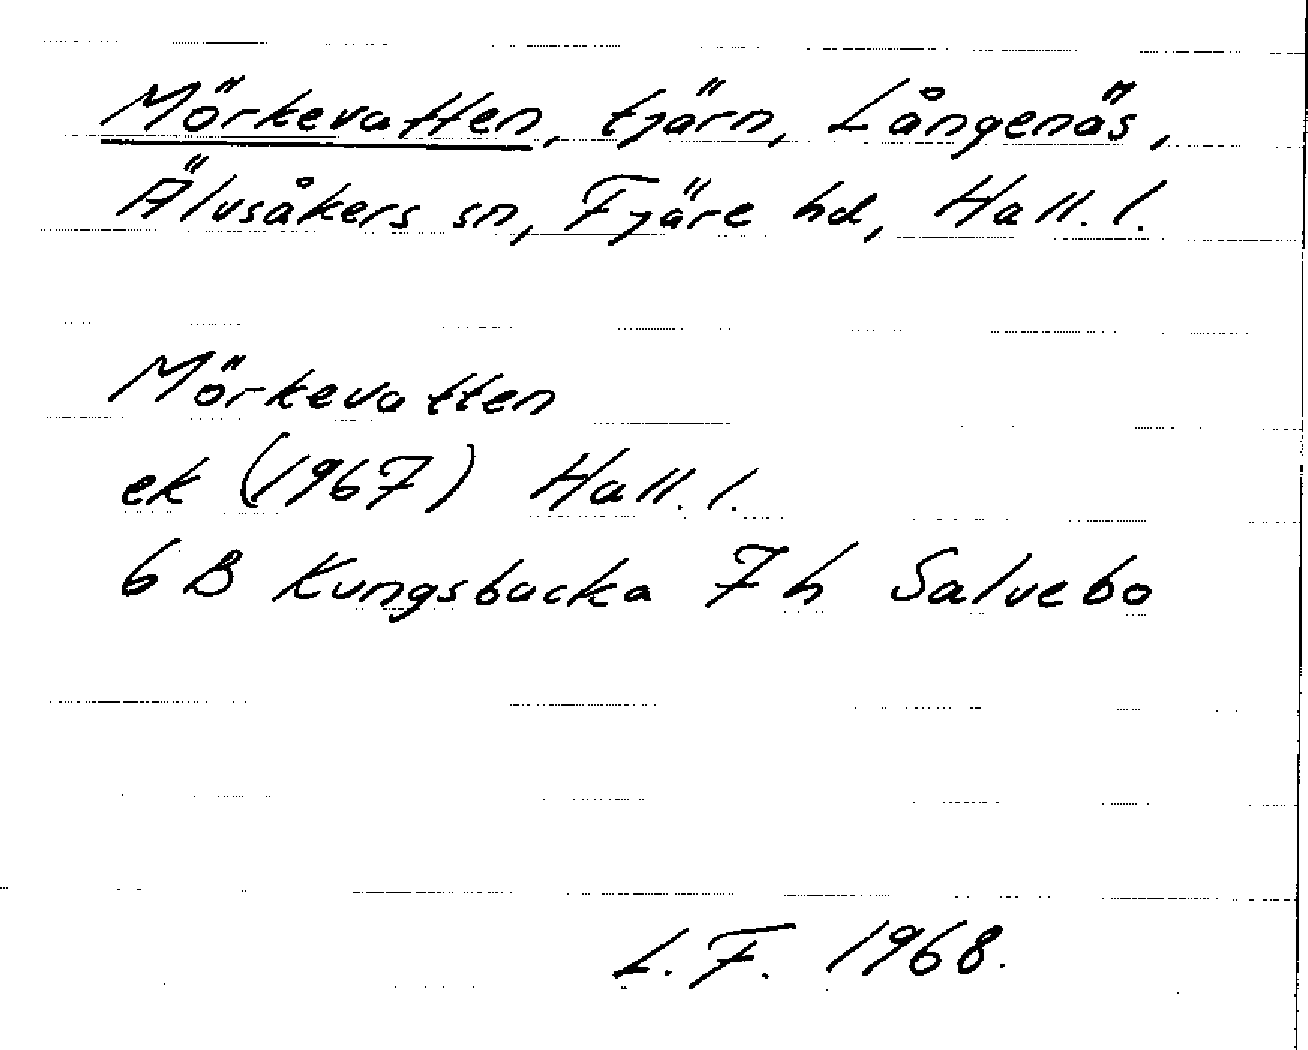 Mörkevatten, tjärn, Långenäs,
Älvsåkers sn, Fjäre hd, Hall. l.
Mörkevatten
ek (1967) Hall. l.
6 B Kungsbacka 7 h Salvebo
L. F. 1968.